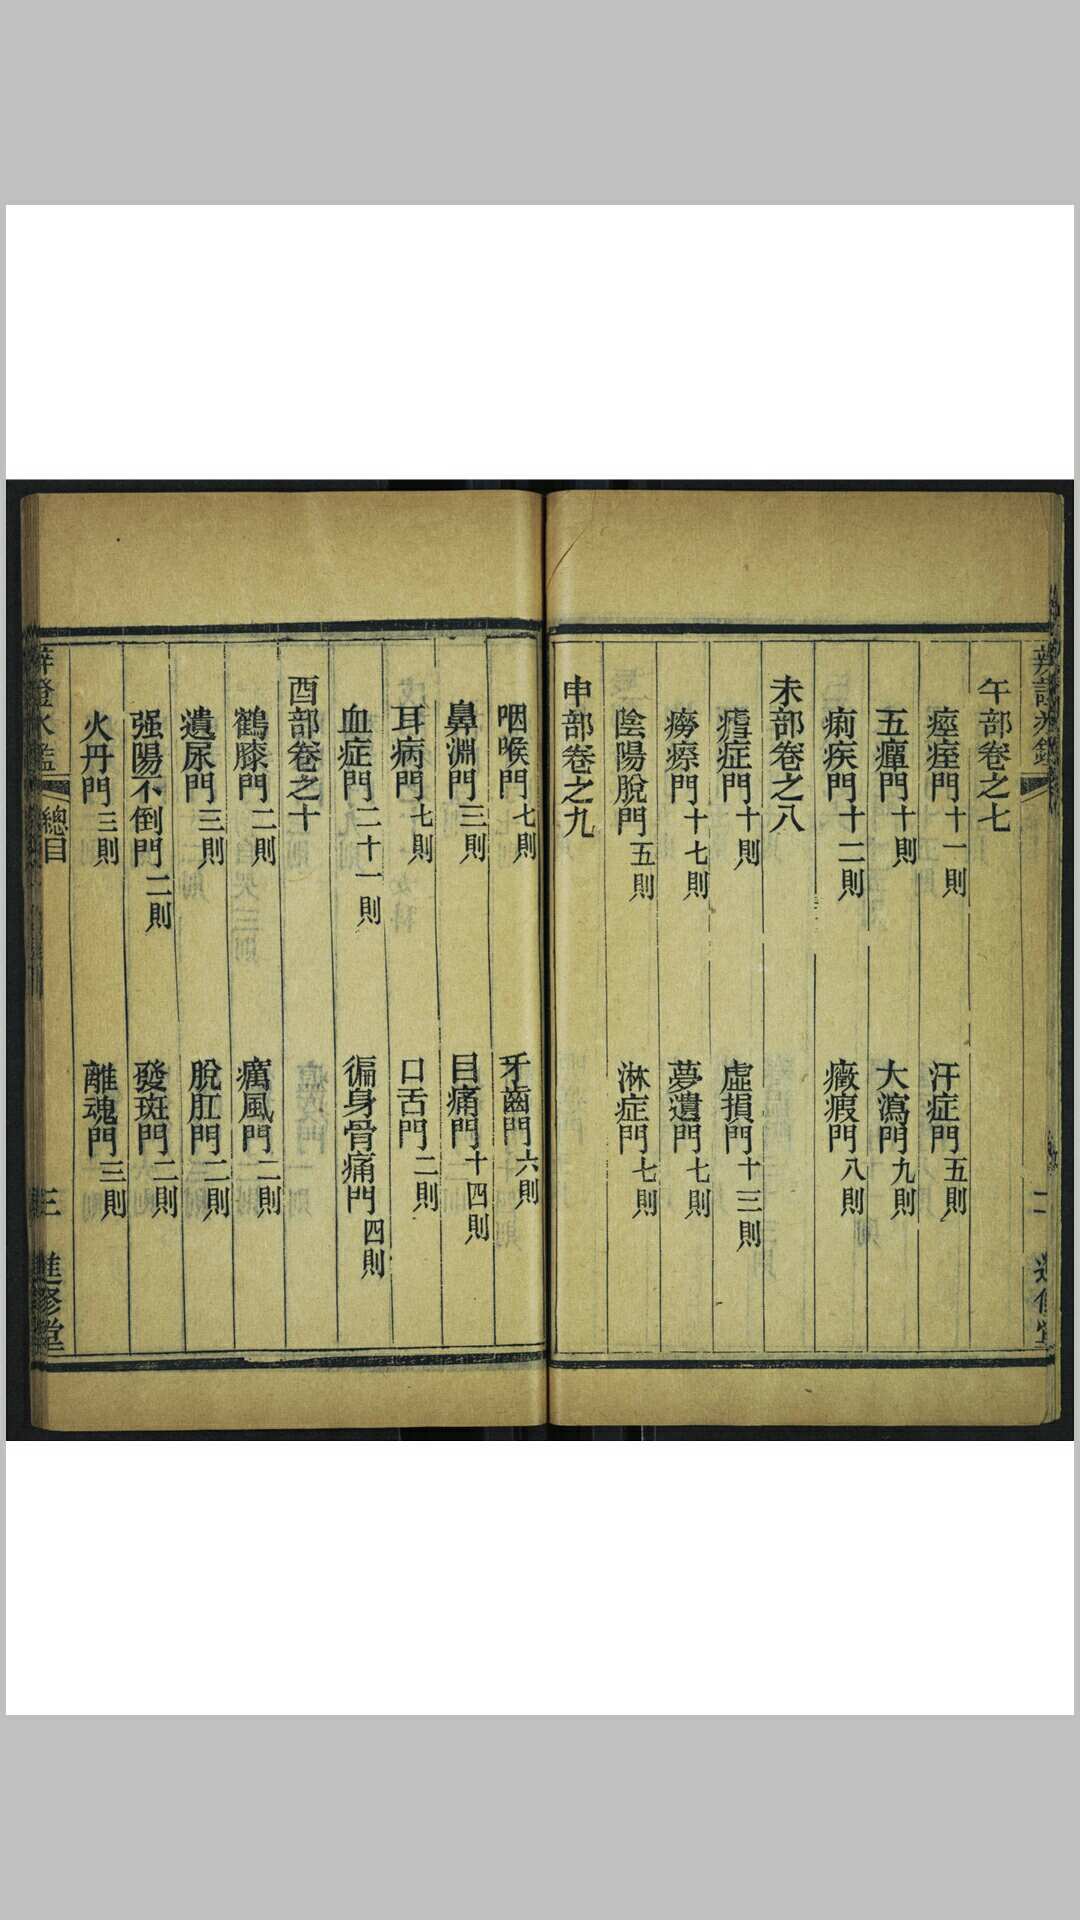 午部卷之七
痙痓門十一則　汗症門五則
五癉門十則　大瀉門九則
痢疾門十二則　癥瘕門八則
未部卷之八
瘧症門十則　虛損門十三則
癆瘵門十七則　夢遺門七則
陰陽脫門五則　淋症門七則
申部卷之九
咽喉門七則　牙齒門六則
鼻淵門三則　目痛門十四則
耳病門七則　口舌門二則
血症門二十一則　徧身骨痛門四則
酉部卷之十
鶴膝門二則　癘風門二則
遺尿門三則　脫肛門二則
强陽不倒門二則　發斑門二則
火丹門三則　離魂門三則
總目　三　進修堂